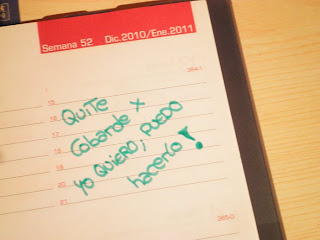 Semana 52 Dic.2010/Ene.2011
364-1
15
QUITE
16
cobarde x
17
18
yo QUIERO ¡ PUEDO
19
hacerlo!
20
21
365-0